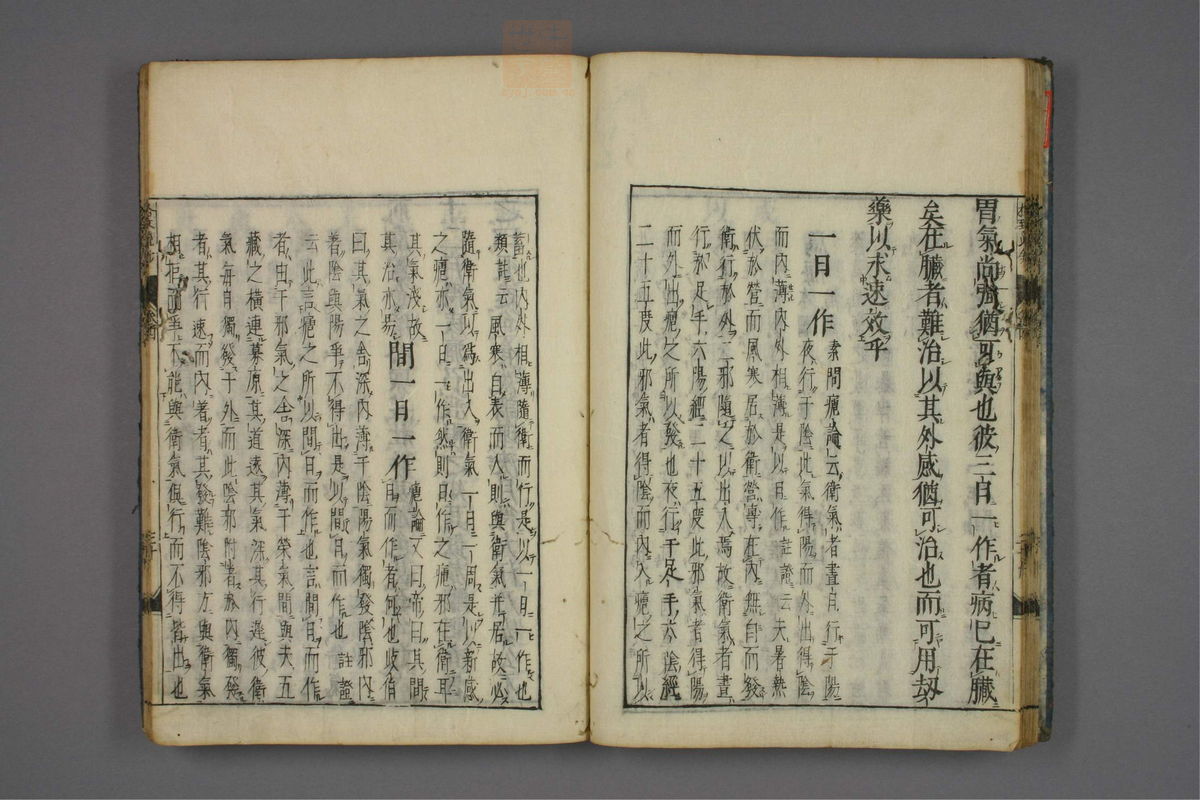 胃氣尚強猶可與也彼三日一作者病已在臟
矣在臟者難治以其外感猶可治也而可用劫
藥以求速效乎
一日一作 素問瘧論云衛氣者晝日行于陽
夜行于陰此氣得陽而外出得陰
而內薄內外相薄是以日作註證云夫暑熱
伏於營而風寒居於衛營專在內無自而發
衛行於外二邪隨之以出入焉故衛氣者晝
行於足手六陽經二十五度此邪氣者得陽
而外出瘧之所以發也夜行于足手六陰經
二十五度此邪氣者得陰而內入瘧之所以
蓄也內外相薄隨衛而行是以一日一作也
類註云風寒自表而入則與衛氣并居故必
隨衛氣以為出入衛氣一日一周是以新感
之瘧亦一日一作然則日作之瘧邪在衛耳
其氣淺故
其治亦易 間一日一作 瘧論又曰帝曰其間
日而作者何也岐伯
曰其氣之舍深內薄于陰陽氣獨發陰邪內
著陰與陽爭不得出是以間日而作也 註證
云此言瘧之所以間日而作也言間日而作
者由于邪氣之舍深內薄于榮氣間與夫五
藏之橫連募原其道遠其氣深其行遲彼衛
氣每日獨發于外而此陰邪附著於內獨發
者其行速而內著者其發難陰邪方與衛氣
相拒而爭不能與衛氣俱行而不得皆出也